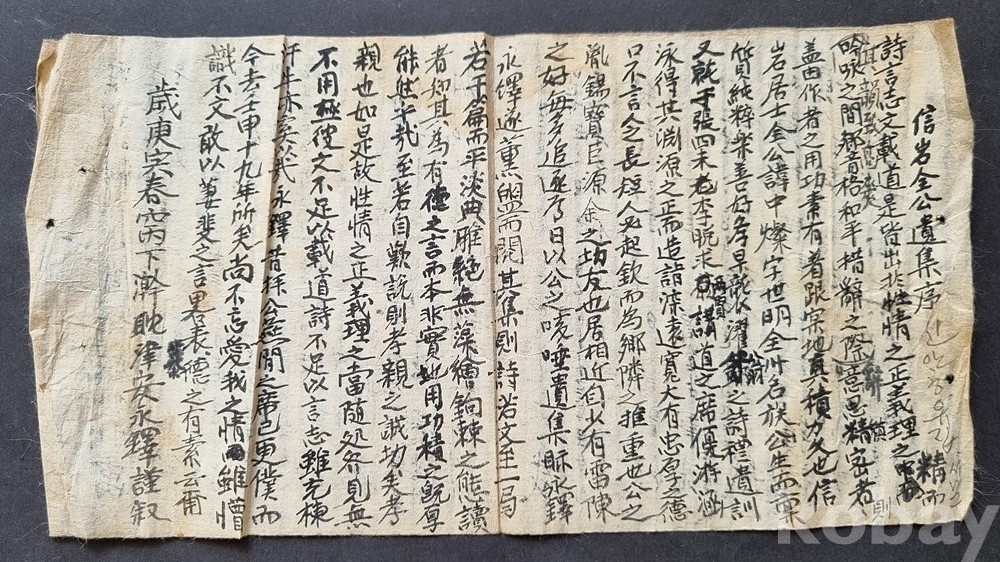 信岩全公遺集序
詩言志文載道是皆出於性情之正義理之精而
吟咏之間都音格和平措辭之際意思精密者則
盖由作者之用功素有着跟實地真積力久也信
岩居士全公諱中燦字世明全州名族公生而稟
質純粹樂善好學早就之詩禮遺訓
又就于張四未老李晩求講道之席優游涵
泳得其淵源之正而造詣深遠寬大有忠厚之德
口不言人之長短人必起欽而為鄉隣之推重也公之
胤錫寶巨源余之切友也居相近自少有雷陳
之好每多追逐乃日以公之咳唾遺集眎永鐸
永鐸遂薰盥而閱其集則詩若文至一局
若干篇而平淡典雅絶無藻繪鉤棘之態讀
者知其為有德之言而本非實地用功積之既厚
能然乎哉至若自歎說則孝親之誠切矣孝
親也如是故性情之正義理之當隨處各見無
不用極彼文不足以載道詩不足以言志雖充棟
汗牛亦奚哉永鐸昔拜公燕閒之席已更僕而
今去壬申十九年所矣尚不忘愛我之情雖懵
識不文敢以萋斐之言畧表德之有素云爾
歲庚寅春雨下澣耽津安永鐸謹叙
kobay